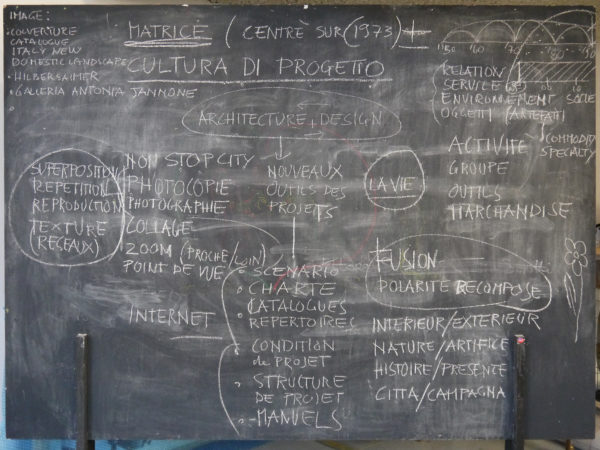 IMAGE:
• COUVERTURE
CATALOGUE
ITALY NEW
DOMESTIC LANDSCAPE
• HILBERSAIMER
• GALLERIA ANTONIA JANNONE
MATRICE ( CENTRÈ SUR (1973)
CULTURA DI PROGETTO
ARCHITECTURE + DESIGN
NON STOP CITY
PHOTOCOPIE
PHOTOGRAPHIE
COLLAGE
ZOOM (PROCHE/LOIN)
POINT DE VUE
SUPERPOSITION
REPETITION
REPRODUCTION
TEXTURE
(RESEAUX)
INTERNET
NOUVEAUX
OUTILS DES
PROJETS
• SCENARIO
• CHARTE
• CATALOGUES
REPERTOIRES
• CONDITION
de PROJET
• STRUCTURE
DE PROJET
• MANUELS
LA VIE
RELATION
SERVICE
ENVIRONNEMENT
OGGETTI (ARTEFATTI
COMMODITY
SPECIALTY
ACTIVITE
GROUPE
OUTILS
MARCHANDISE
FUSION
POLARITE RECOMPOSE
INTERIEUR/EXTERIEUR
NATURE/ARTIFICE
HISTOIRE/PRESENCE
CITTA/CAMPAGNA